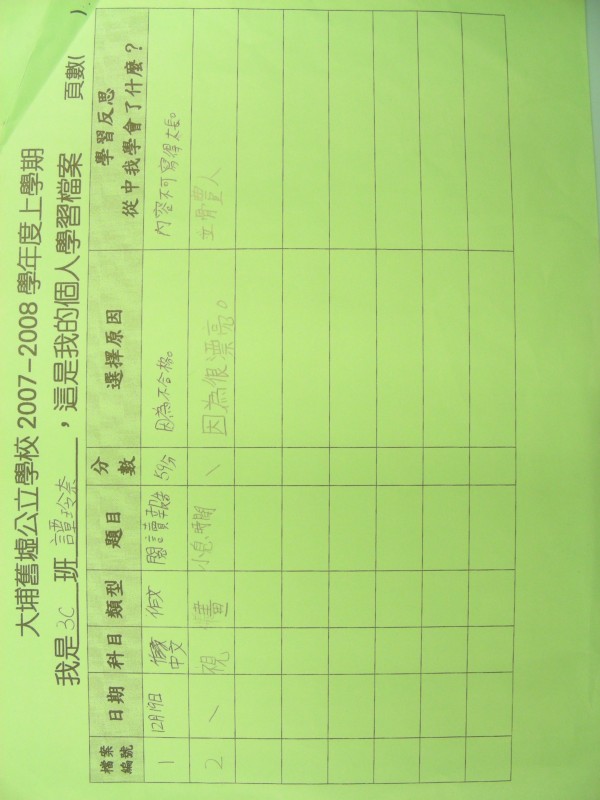 大埔舊墟公立學校 2007-2008 學年度上學期
我是 3C 班 譚玲奈 , 這是我的個人學習檔案 頁數( )
檔案編號 日期 科目 類型 題目 分數 選擇原因 學習反思 從中我學會了什麼？
1 12月19日 中文 作文 閱讀報告 59分 因為不合格。 內容不可寫得太長。
2 \ 視 畫 小息時間 \ 因為很漂亮。 立體人